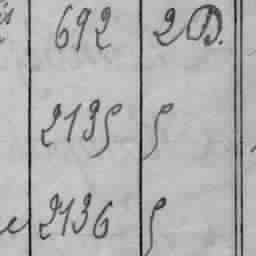 692 2D.
2135 5
2136 5